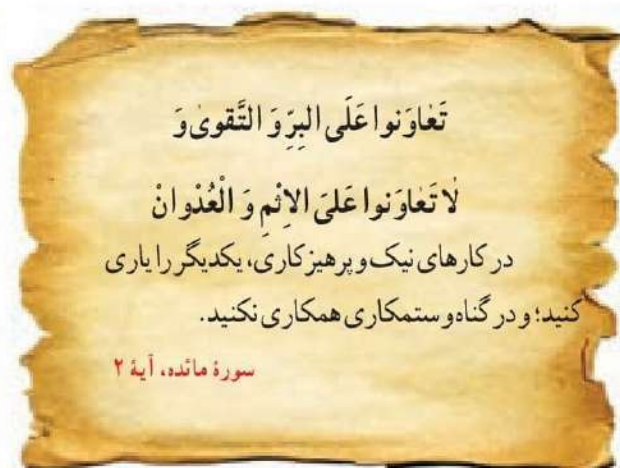 تَعٰاوَنوا عَلَی البِرِّ وَ التَّقویٰ وَ
لٰا تَعٰاوَنوا عَلیَ الاِثْمِ وَ الْعُدْوانْ
در کارهای نیک و پرهیزکاری، یکدیگر را یاری
کنید؛ و در گناه و ستمکاری همکاری نکنید.
سورهٔ مائده، آیهٔ ۲